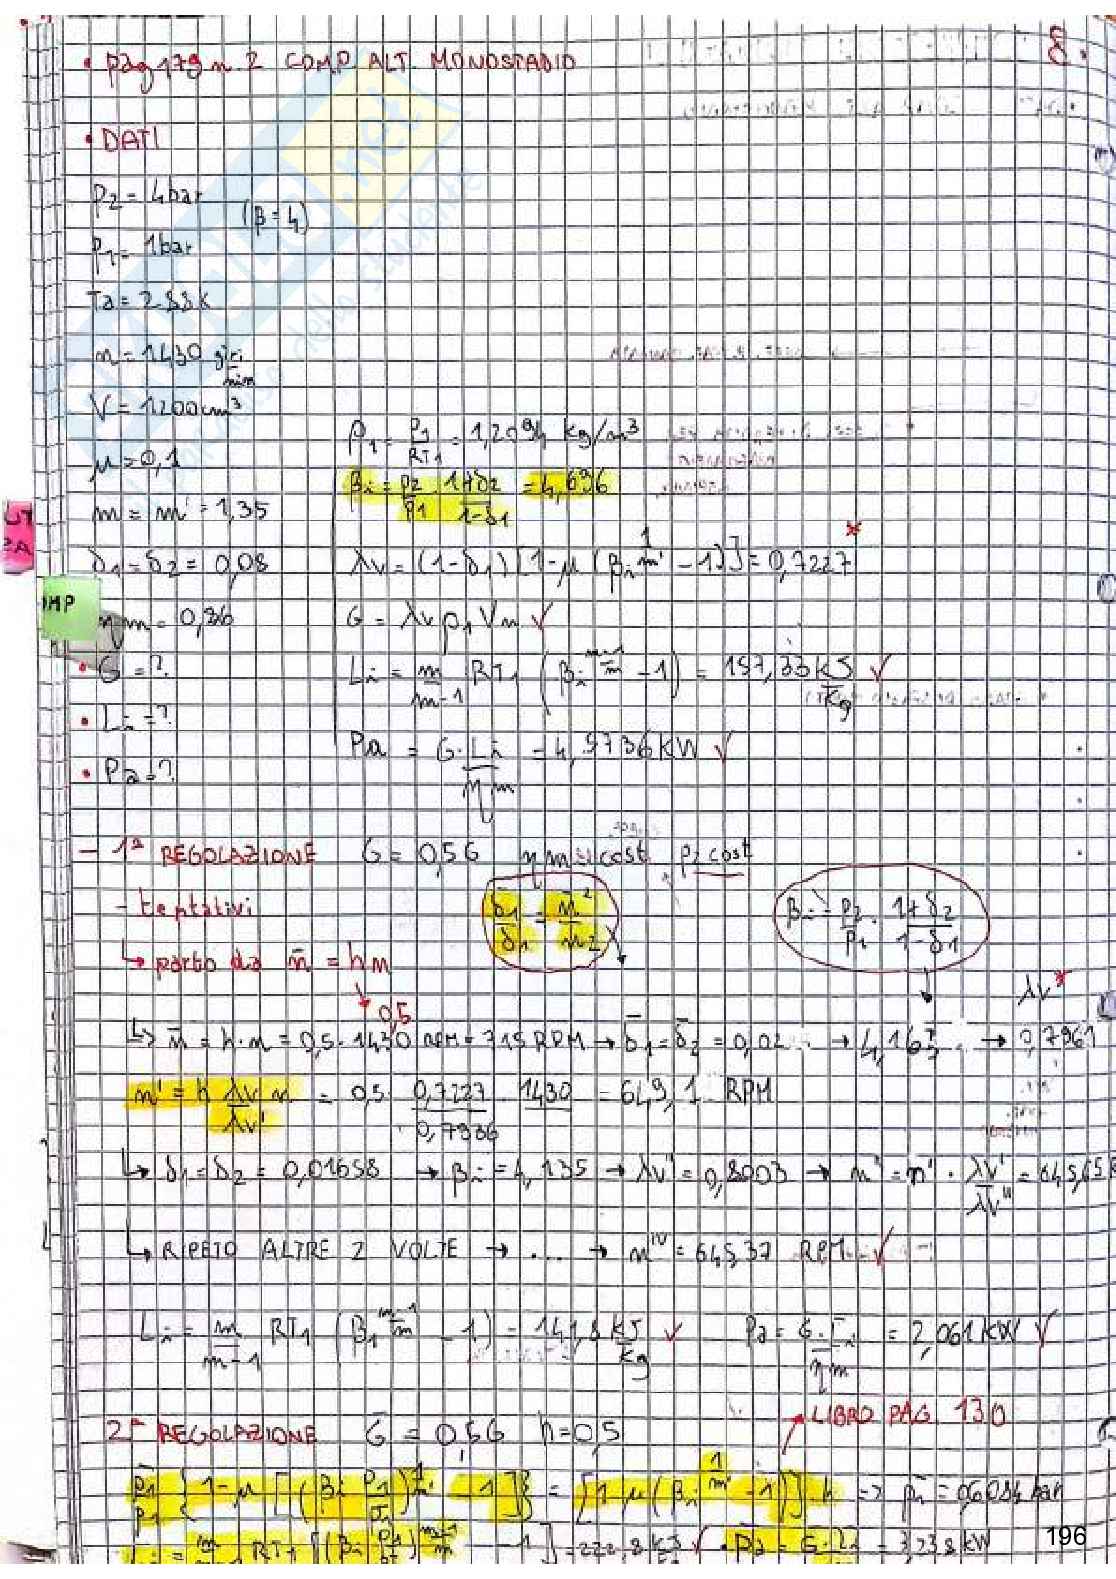 8.
• pag 179 n. 2 COMP. ALT. MONOSTADIO
• DATI
p2 = 4bar
(β = 4)
p1 = 1bar
Ta = 288K
n = 1430 giri/min
V = 1200 cm³
μ = 0,1
m = m' = 1,35
δ1 = δ2 = 0,08
ηm = 0,86
• G = ?
• Li = ?
• Pa = ?
ρ1 = p1/RT1 = 1,2094 kg/m³
βi = p2/p1 · (1+δ2)/(1-δ1) = 4,696
λv = (1-δ1) [1-μ (βi^(1/m') - 1)] = 0,7227 *
G = λv ρ1 V n ✓
Li = m/(m-1) RT1 (βi^((m-1)/m) - 1) = 157,33 kJ/kg ✓
Pa = G·Li/ηm = 4,5736 KW ✓
- 1ª REGOLAZIONE G̅ = 0,5G ηm = cost p2 cost
- tentativi
δ̅1/δ1 = n̅²/n²
βi = p2/p1 · (1+δ2)/(1-δ1)
↳ parto da n̅ = hn
0,5
λv *
↳ n̅ = h·n = 0,5·1430 RPM = 715 RPM → δ̅1 = δ̅2 = 0,02 → 4,163 → 0,7961
n' = h λv/λv' n = 0,5 · 0,7227/0,7936 · 1430 = 649,1 RPM
↳ δ1 = δ2 = 0,01658 → βi = 4,135 → λv' = 0,8003 → n'' = n' · λv'/λv'' = 645,658
↳ RIPETO ALTRE 2 VOLTE → .... → n^IV = 645,37 RPM ✓
Li = m/(m-1) RT1 (βi^((m-1)/m) - 1) = 141,8 kJ/kg ✓ Pa = G̅·L̅i/ηm = 2,061 KW ✓
LIBRO PAG. 130
2ª REGOLAZIONE G̅ = 0,5G h = 0,5
p̅1/p1 {1-μ [(βi p1/p̅1)^(1/m') - 1]} = [1-μ (βi^(1/m') - 1)] · h => p̅1 = 0,6084 bar
Li = m/(m-1) RT1 [(βi p1/p̅1)^((m-1)/m) - 1] = 222,8 kJ ✓ • Pa = G·Li = 3,238 kW
196